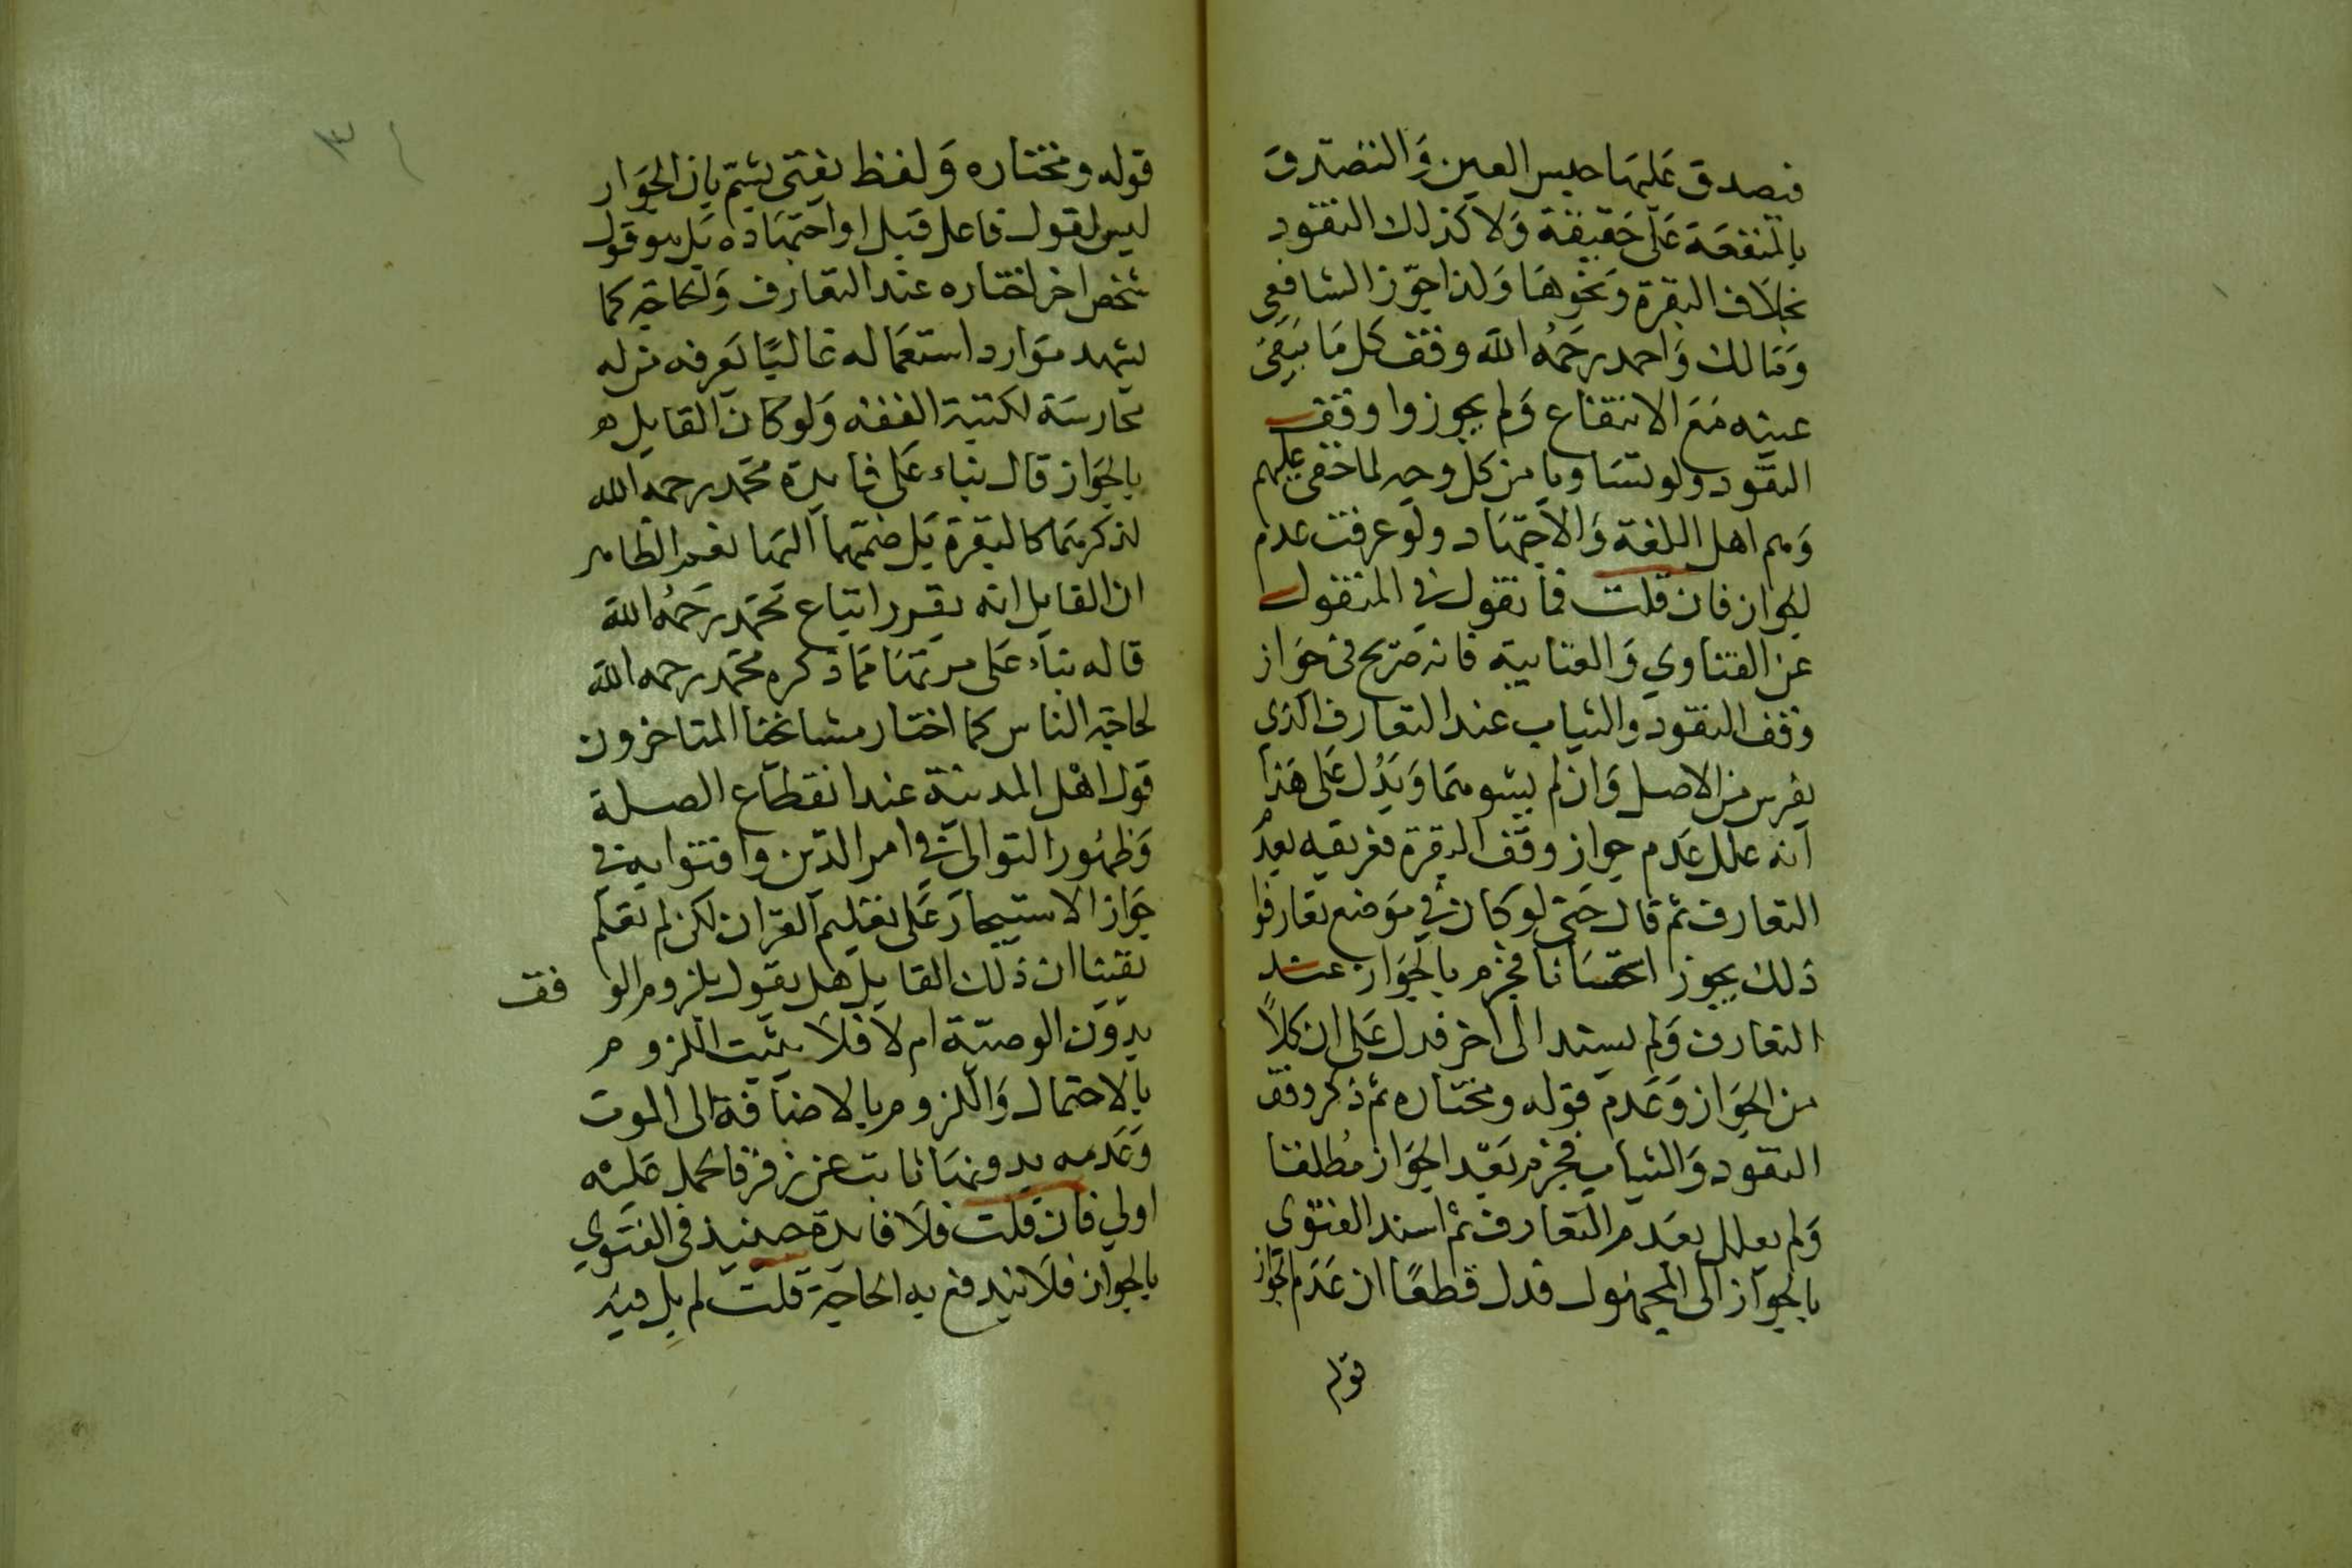 فيصدق عليها حبس العين والتصدق
بالمنفعة على حقيقة ولا كذلك النقود
بخلاف البقرة ونحوها ولذا جوز الشافعي
ومالك واحمد رحمه الله وقف كل ما يبقى
عينه مع الانتفاع ولم يجوزوا وقف
النقود ولو تساويا من كل وجه لما خفى عليهم
وهم اهل اللغة والاجتهاد ولو عرفت عدم
الجواز فان قلت فما تقول في المنقول
عن الفتاوي والعتابية فانه صريح في جواز
وقف النقود والثياب عند التعارف الذى
من الاصل وان لم ويدل على هذا
انه علل عدم جواز وقف البقرة بعد
التعارف ثم قال حتى لو كان في موضع تعارفوا
ذلك يجوز استحسانا فجزم بالجواز عند
التعارف ولم يسند الى اخر فدل على ان كلا
من الجواز وعدم قوله ومختاره ثم ذكر وقف
النقود والثياب فجزم بعد الجواز مطلقا
ولم يعلل بعدم التعارف ثم اسند الفتوى
بالجواز الى المجهول فدل قطعا ان عدم الجواز
قوله
٣١
قوله ومختاره ولفظ يفتى بان الجواز
ليس لقول فاعل قبل او اجتهاده بل هو قول
شخص اخر اختاره عند التعارف والحاجة كما
يشهد موارد استعماله غالبا يعرفه من له
ممارسة لكتبة الفقه ولو كان القايل
بالجواز قال بناء على محمد رحمه الله
كالبقرة بل ضمهما اليها الظاهر
ان القايل انه اتباع محمد رحمه الله
قاله بناء على ذكره محمد رحمه الله
لحاجة الناس كما اختار مشائخنا المتاخرون
قول اهل المدينة عند انقطاع الصلة
وظهور التوانى في امر الدين وافتوا به في
جواز الاستيجار على تعليم القران لكن لم نعلم
يقينا ان ذلك القايل هل يقول بلزوم الوقف
بدون الوصية ام لا فلا يثبت اللزوم
بالاحتمال واللزوم بالاضافة الى الموت
وعدمه بدونها ثابت عن زفر فالحمل عليه
اولي فان قلت فلا فايدة حينئذ في الفتوي
بالجواز فلا يندفع به الحاجة قلت لم بل فيه